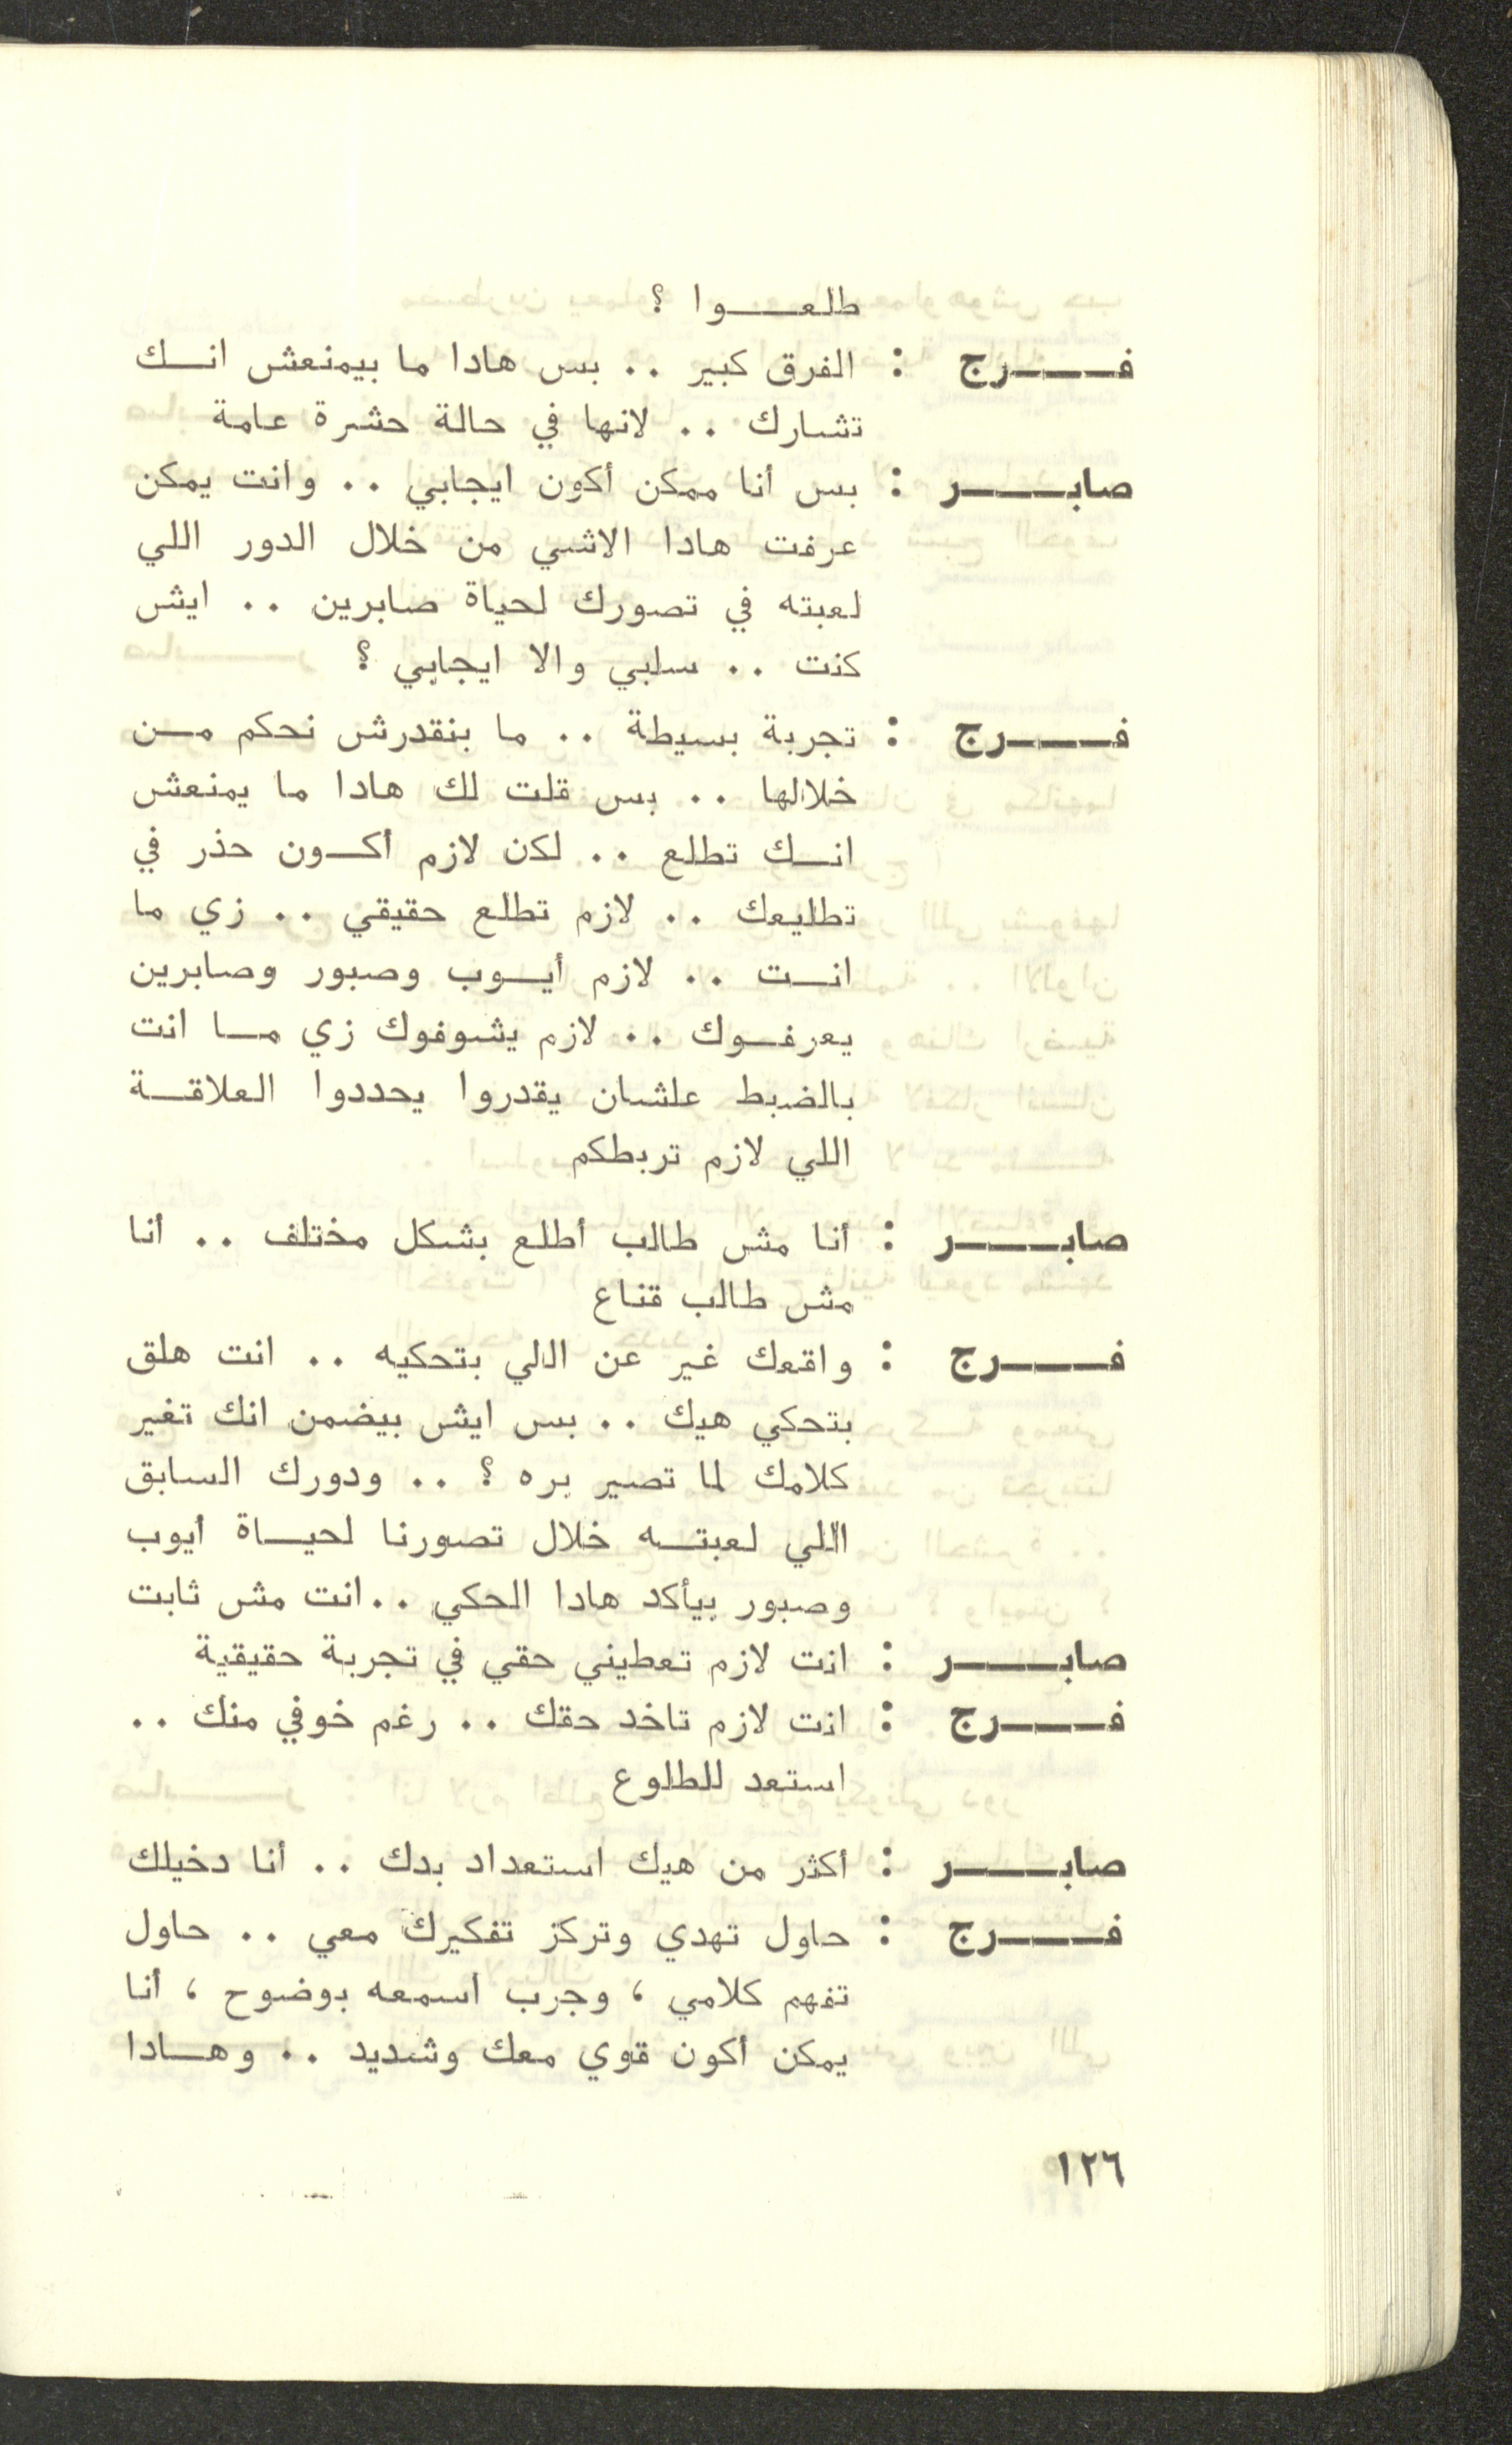 طلعوا ؟
فرج : الفرق كبير .. بس هادا ما بيمنعش انك
تشارك .. لانها في حالة حشرة عامة
صابر : بس أنا ممكن أكون ايجابي .. وانت يمكن
عرفت هادا الاشي من خلال الدور اللي
لعبته في تصورك لحياة صابرين .. ايش
كنت .. سلبي والا ايجابي ؟
فرج : تجربة بسيطة .. ما بنقدرش نحكم من
خلالها .. بس قلت لك هادا ما يمنعش
انك تطلع .. لكن لازم أكون حذر في
تطليعك .. لازم تطلع حقيقي .. زي ما
انت .. لازم أيوب وصبور وصابرين
يعرفوك .. لازم يشوفوك زي ما انت
بالضبط علشان يقدروا يحددوا العلاقة
اللي لازم تربطكم
صابر : أنا مش طالب أطلع بشكل مختلف .. أنا
مش طالب قناع
فرج : واقعك غير عن اللي بتحكيه .. انت هلق
بتحكي هيك .. بس ايش بيضمن انك تغير
كلامك لما تصير بره ؟ .. ودورك السابق
اللي لعبته خلال تصورنا لحياة أيوب
وصبور بيأكد هادا الحكي .. انت مش ثابت
صابر : انت لازم تعطيني حقي في تجربة حقيقية
فرج : انت لازم تاخد حقك .. رغم خوفي منك ..
استعد للطلوع
صابر : أكثر من هيك استعداد بدك .. أنا دخيلك
فرج : حاول تهدي وتركز تفكيرك معي .. حاول
تفهم كلامي ، وجرب اسمعه بوضوح ، أنا
يمكن أكون قوي معك وشديد .. وهادا
١٢٦